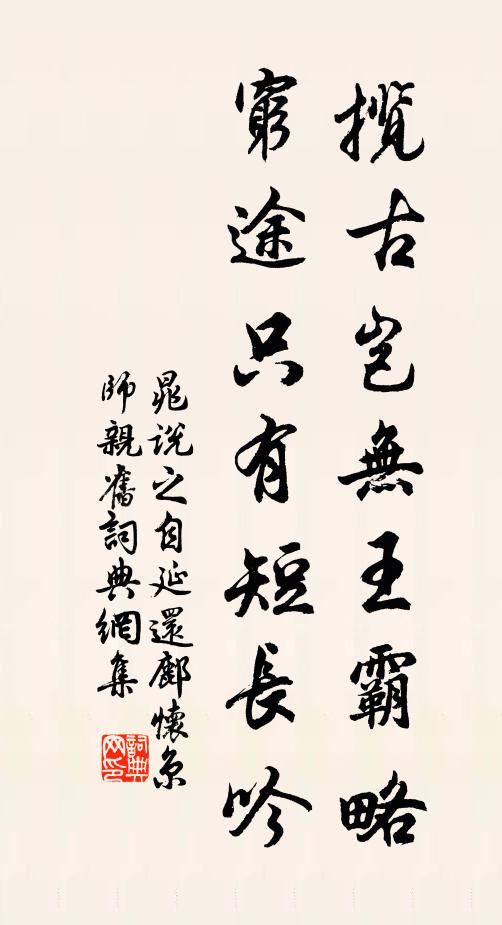 攬古豈無王霸略
窮途只有短長吟
晁説之自延還鄜懷京
師親舊詞典網集
詞典
网印